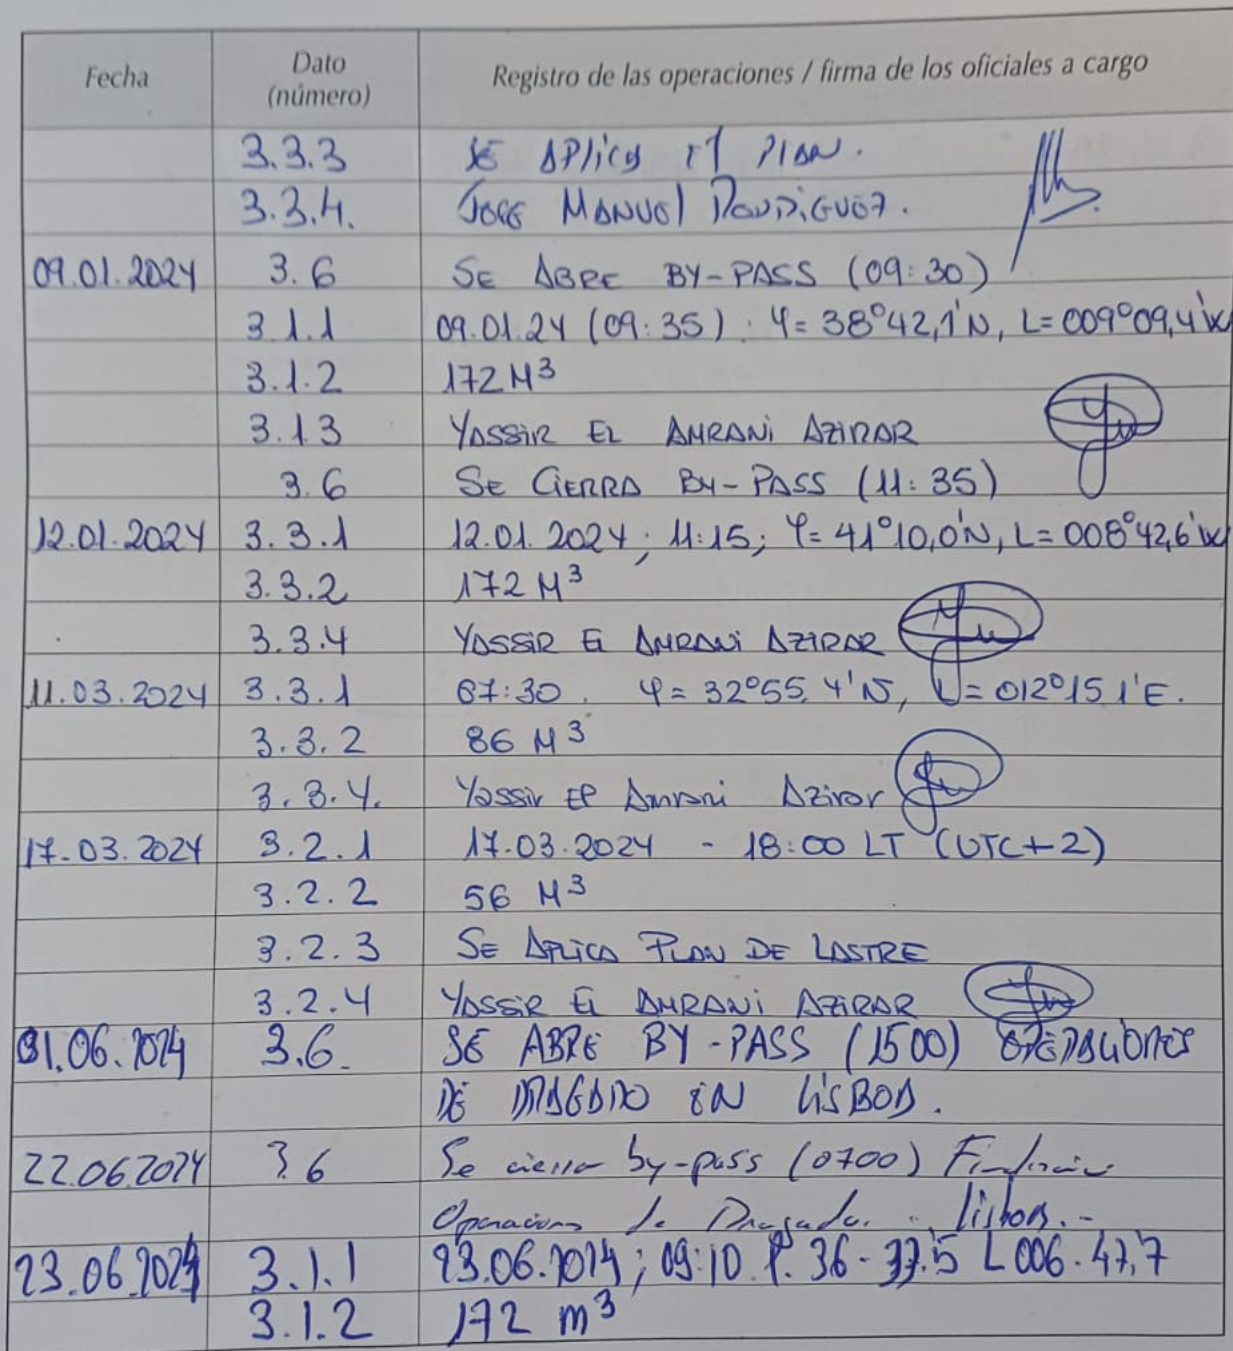 Fecha Dato (número) Registro de las operaciones / firma de los oficiales a cargo
3.3.3 SE APlica el PlAN.
3.3.4. JOSE MANUEl RODRiGUEZ.
09.01.2024 3.6 SE ABRE BY-PASS (09:30)
3.1.1 09.01.24 (09:35). φ= 38°42,1'N, L= 009°09,4'W
3.1.2 172 M³
3.1.3 YASSiR EL AMRANi AZIRAR
3.6 SE CIERRA BY-PASS (11:35)
12.01.2024 3.3.1 12.01.2024; 11:15; φ= 41°10,0'N, L= 008°42,6'W
3.3.2 172 M³
3.3.4 YASSIR El AMRANi AZIRAR
11.03.2024 3.3.1 07:30. φ= 32°55.4'N, L= 012°15.1'E.
3.3.2 86 M³
3.3.4. Yassir El Amrani Azirar
17.03.2024 3.2.1 17.03.2024 - 18:00 LT (UTC+2)
3.2.2 56 M³
3.2.3 SE APLICA PLAN DE LASTRE
3.2.4 YASSIR El AMRANi AZIRAR
01.06.2024 3.6. SE ABRE BY-PASS (1500) OPERACIONES
DE DRAGADO EN LISBOA.
22.06.2024 3.6 Se cierra by-pass (0700)
Operaciones de Dragado. Lisboa.-
23.06.2024 3.1.1 23.06.2024; 09:10 φ. 36-37.5 L 006-47,7
3.1.2 172 m³